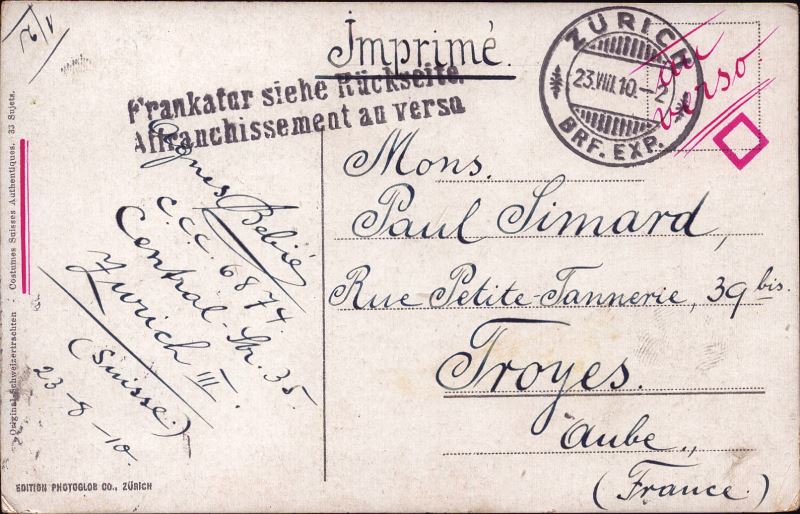 Imprimé.
Frankatur siehe Rückseite.
Affranchissement au verso
ZÜRICH
23.VIII.10.-2
BRF. EXP.
au
verso.
Mons.
Paul Simard,
Rue Petite-Tannerie, 39 bis.
Troyes.
Aube,
(France.)
Agnes Bebié
c.c.c. 6874.
Central-Str. 35.
Zurich III.
(Suisse.)
23-8-10.
Original-Schweizertrachten : Costumes Suisses Authentiques. 33 Sujets.
EDITION PHOTOGLOB CO., ZÜRICH